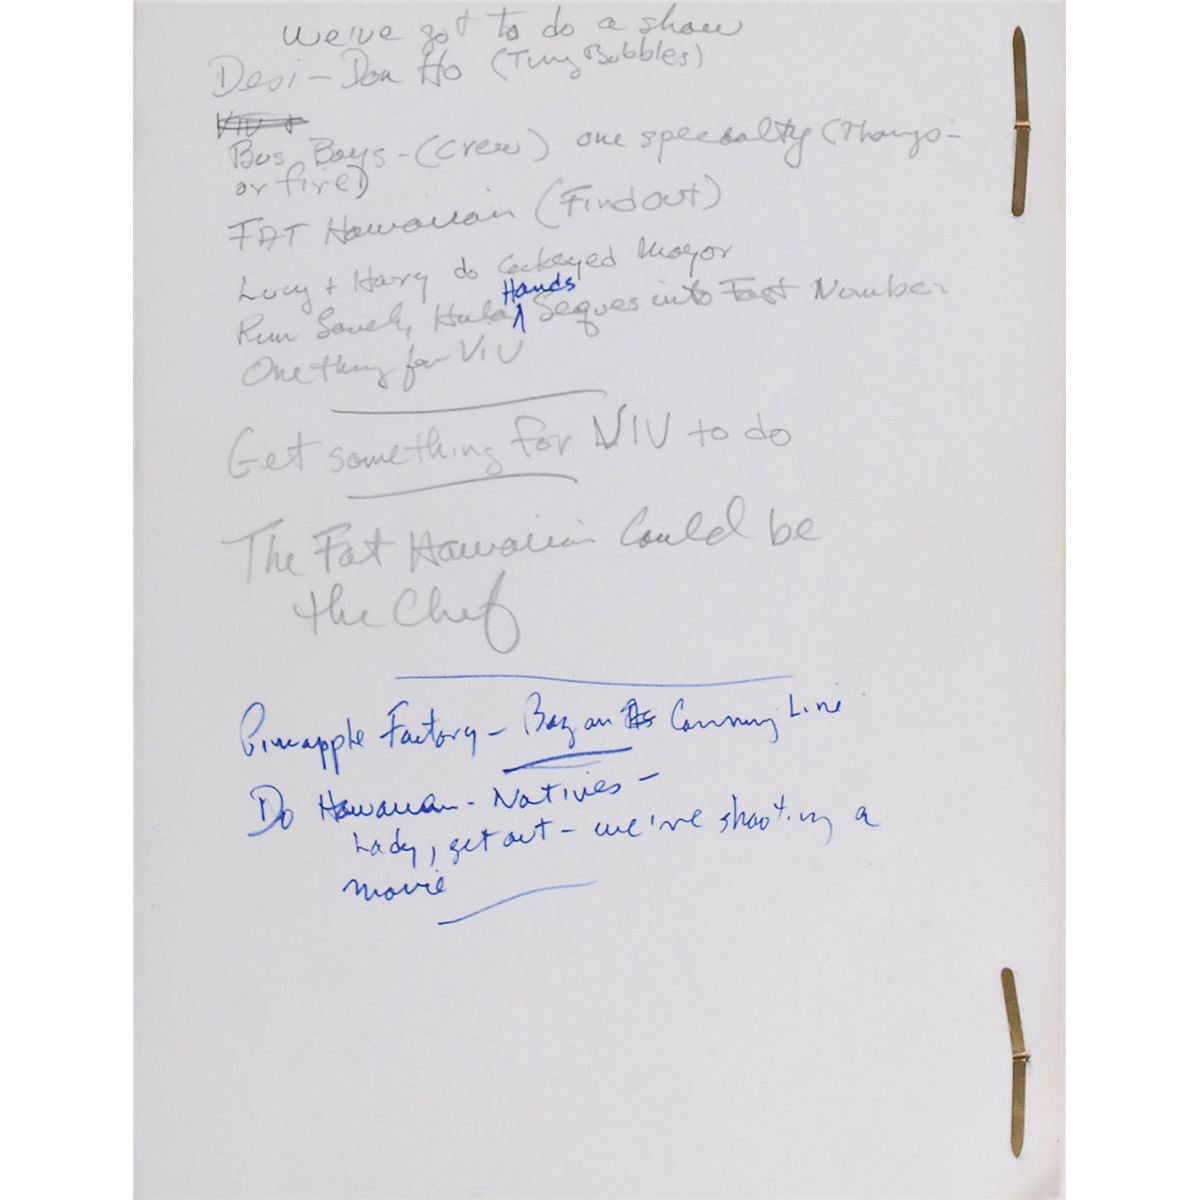 we've got to do a show
Desi - Don Ho (Tiny Bubbles)
VIV +
Bus Boys - (Crew) one specialty (Thongs -
or fire)
FAT Hawaiian (Find out)
Lucy + Harry do Cockeyed Mayor
Hands
Run Hula Segues into Fast Number
One thing for VIV
Get something for VIV to do
The Fat Hawaiian Could be
the Chef
Pineapple Factory - on Canning Line
Do Hawaiian - Natives -
Lady, get out - we're shooting a
movie